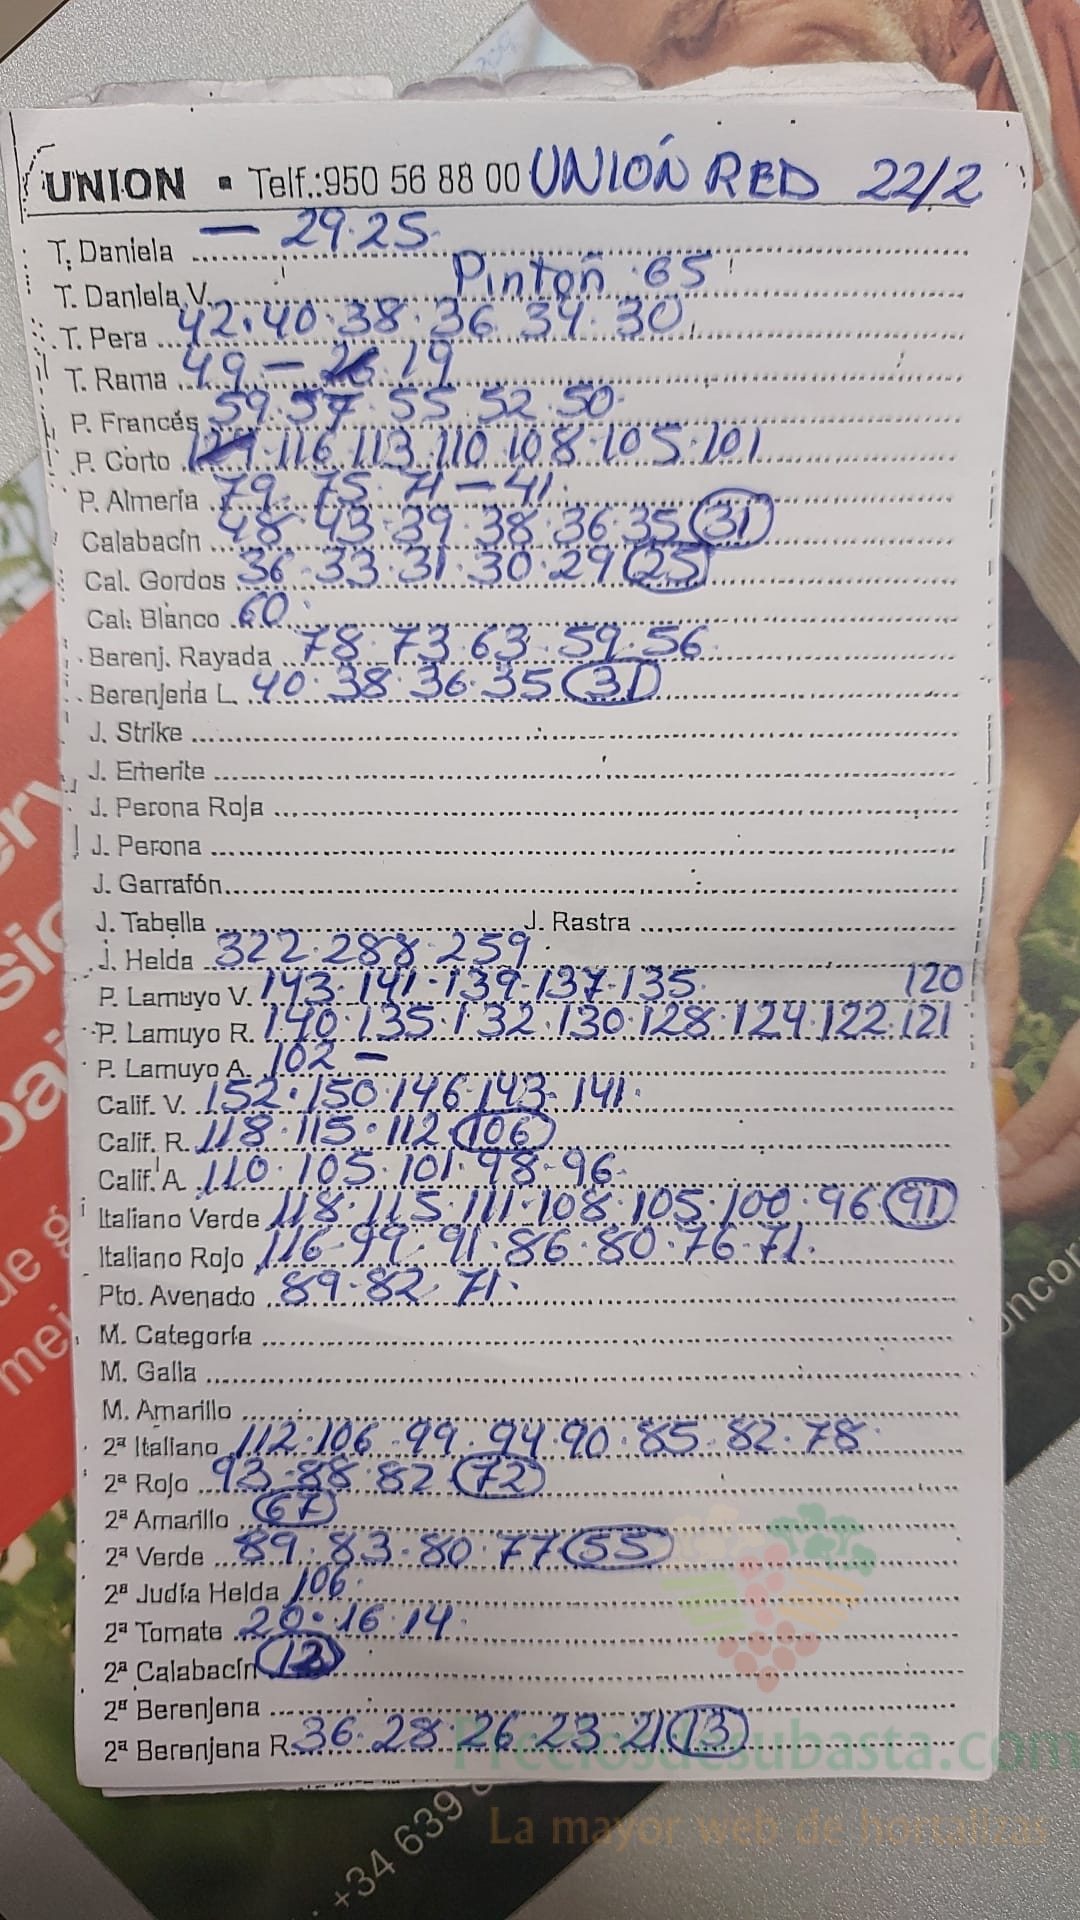 UNION ▪ Telf.:950 56 88 00 UNIÓN RED 22/2
T. Daniela — 29·25
T. Daniela V. Pintón 65
T. Pera 42·40·38·36 34·30
T. Rama 49 — 19
P. Francés 59·57·55·52·50
P. Corto ·116·113·110·108·105·101
P. Almería 79·75·71—41
Calabacín 48·43·39·38·36·35 (31)
Cal. Gordos 36·33·31·30·29 (25)
Cal. Blanco 60
Berenj. Rayada 78·73·63·59·56
Berenjena L. 40·38·36·35 (31)
J. Strike
J. Emerite
J. Perona Roja
J. Perona
J. Garrafón
J. Tabella J. Rastra
J. Helda 322·288·259
P. Lamuyo V. 143·141·139·137·135 120
P. Lamuyo R. 140·135·132·130·128·124·122·121
P. Lamuyo A. 102 —
Calif. V. 152·150·146·143·141
Calif. R. 118·115·112 (106)
Calif. A. 110·105·101·98·96
Italiano Verde 118·115·111·108·105·100·96 (91)
Italiano Rojo 116·99·91·86·80·76·71
Pto. Avenado 89·82·71
M. Categoría
M. Galia
M. Amarillo
2ª Italiano 112·106·99·94·90·85·82·78
2ª Rojo 93·88·82 (72)
2ª Amarillo (67)
2ª Verde 89·83·80·77 (55)
2ª Judía Helda 106
2ª Tomate 20·16·14
2ª Calabacín
2ª Berenjena
2ª Berenjena R. 36·28·26·23·21 (13)
Preciosdesubasta.com
La mayor web de hortalizas
+34 639